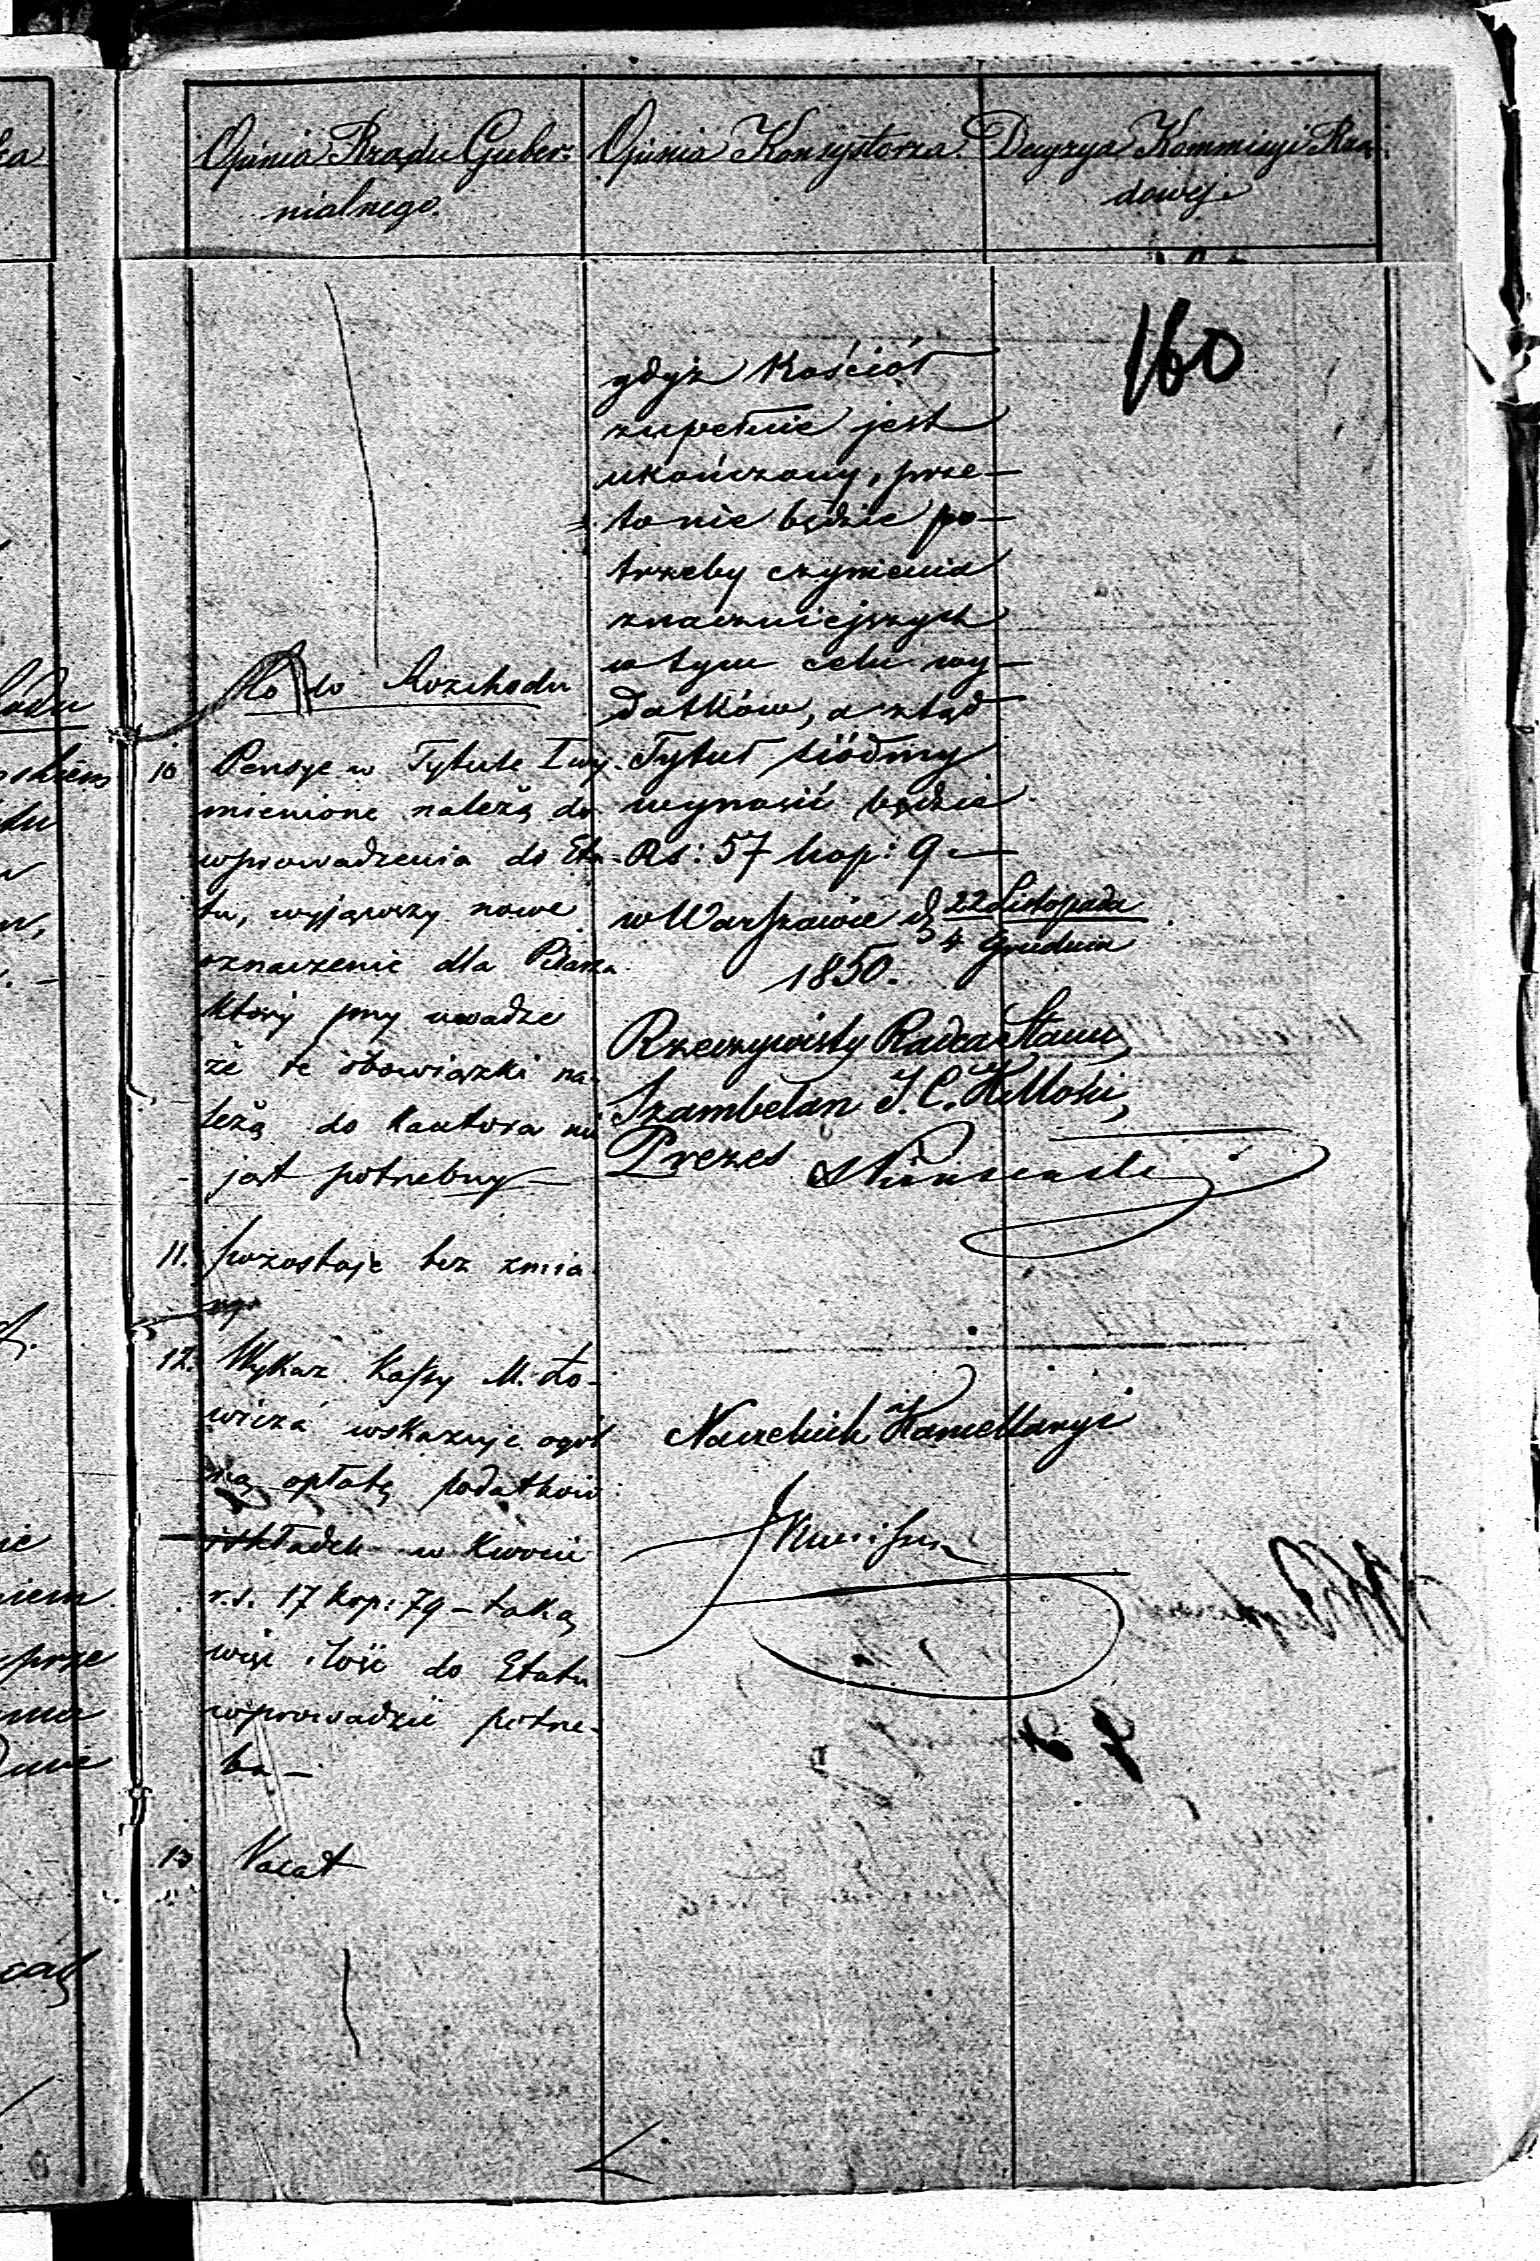 Opinia Rządu Guber-
nialnego.
Opinia Konsystorza.
Decyzya Kommissyi Rzą-
dowej
160
Co do Rozchodu
10 Pensye w Tytule I wy-
mienione należą do
wprowadzenia do Eta-
tu, wyjąwszy nowe
oznaczenie dla Pisarza
który przy uwadze
że te obowiązki na-
leżą do Kantora nie
jest potrzebny
11. pozostaje bez zmia-
ny
12. Wykaz Kassy M. Ło-
wicza wskazuje ogól
ną opłatę podatków
i składek w kwocie
r.s. 17 kop: 79 – taką
więc ilość do Etatu
wprowadzić potrze-
ba –
13 Vacat
gdyż Kościół
zupełnie jest
ukończony, prze-
to nie będzie po-
trzeby czynienia
znaczniejszych
w tym celu wy-
datków, a ztąd
Tytuł siódmy
wynosić będzie
Rs: 57 kop: 9 –
w Warszawie d. 22 Listopada
4 Grudnia
1850.
Rzeczywisty Radca Stanu,
Szambelan J. C. K. Mości,
Prezes
Naczelnik Kancellaryi